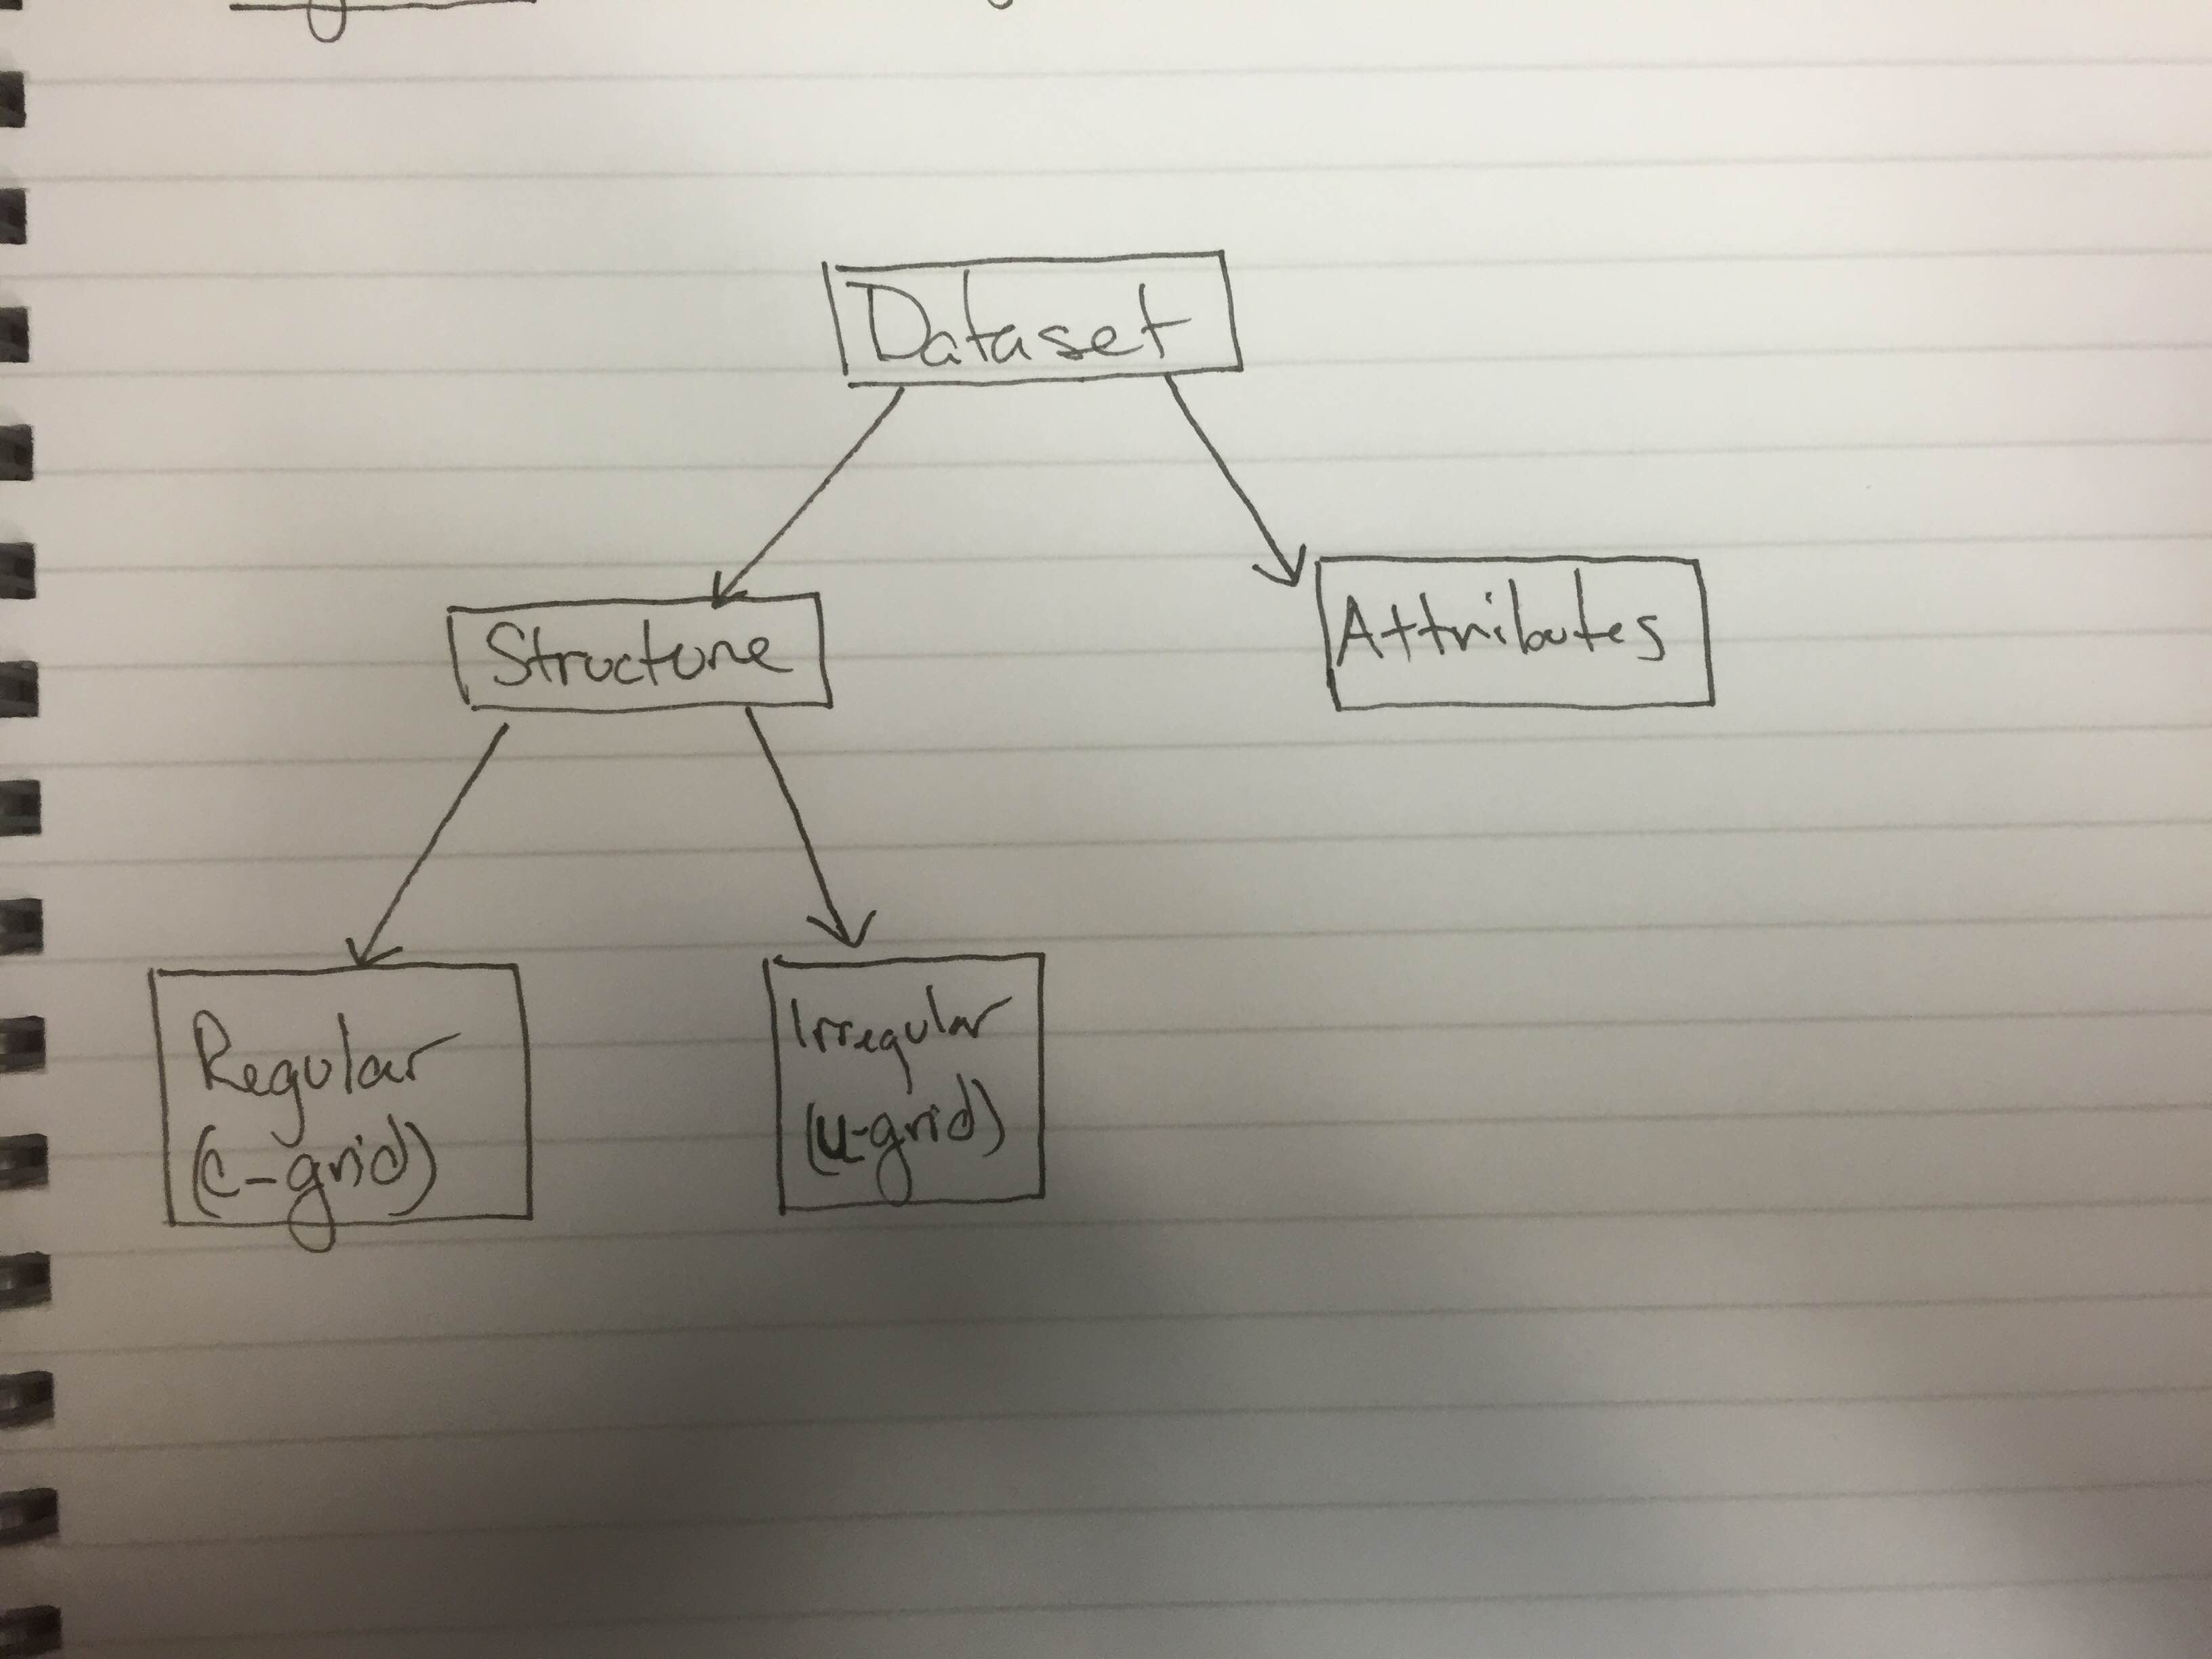 Dataset
Structure
Attributes
Regular
(c-grid)
Irregular
(u-grid)